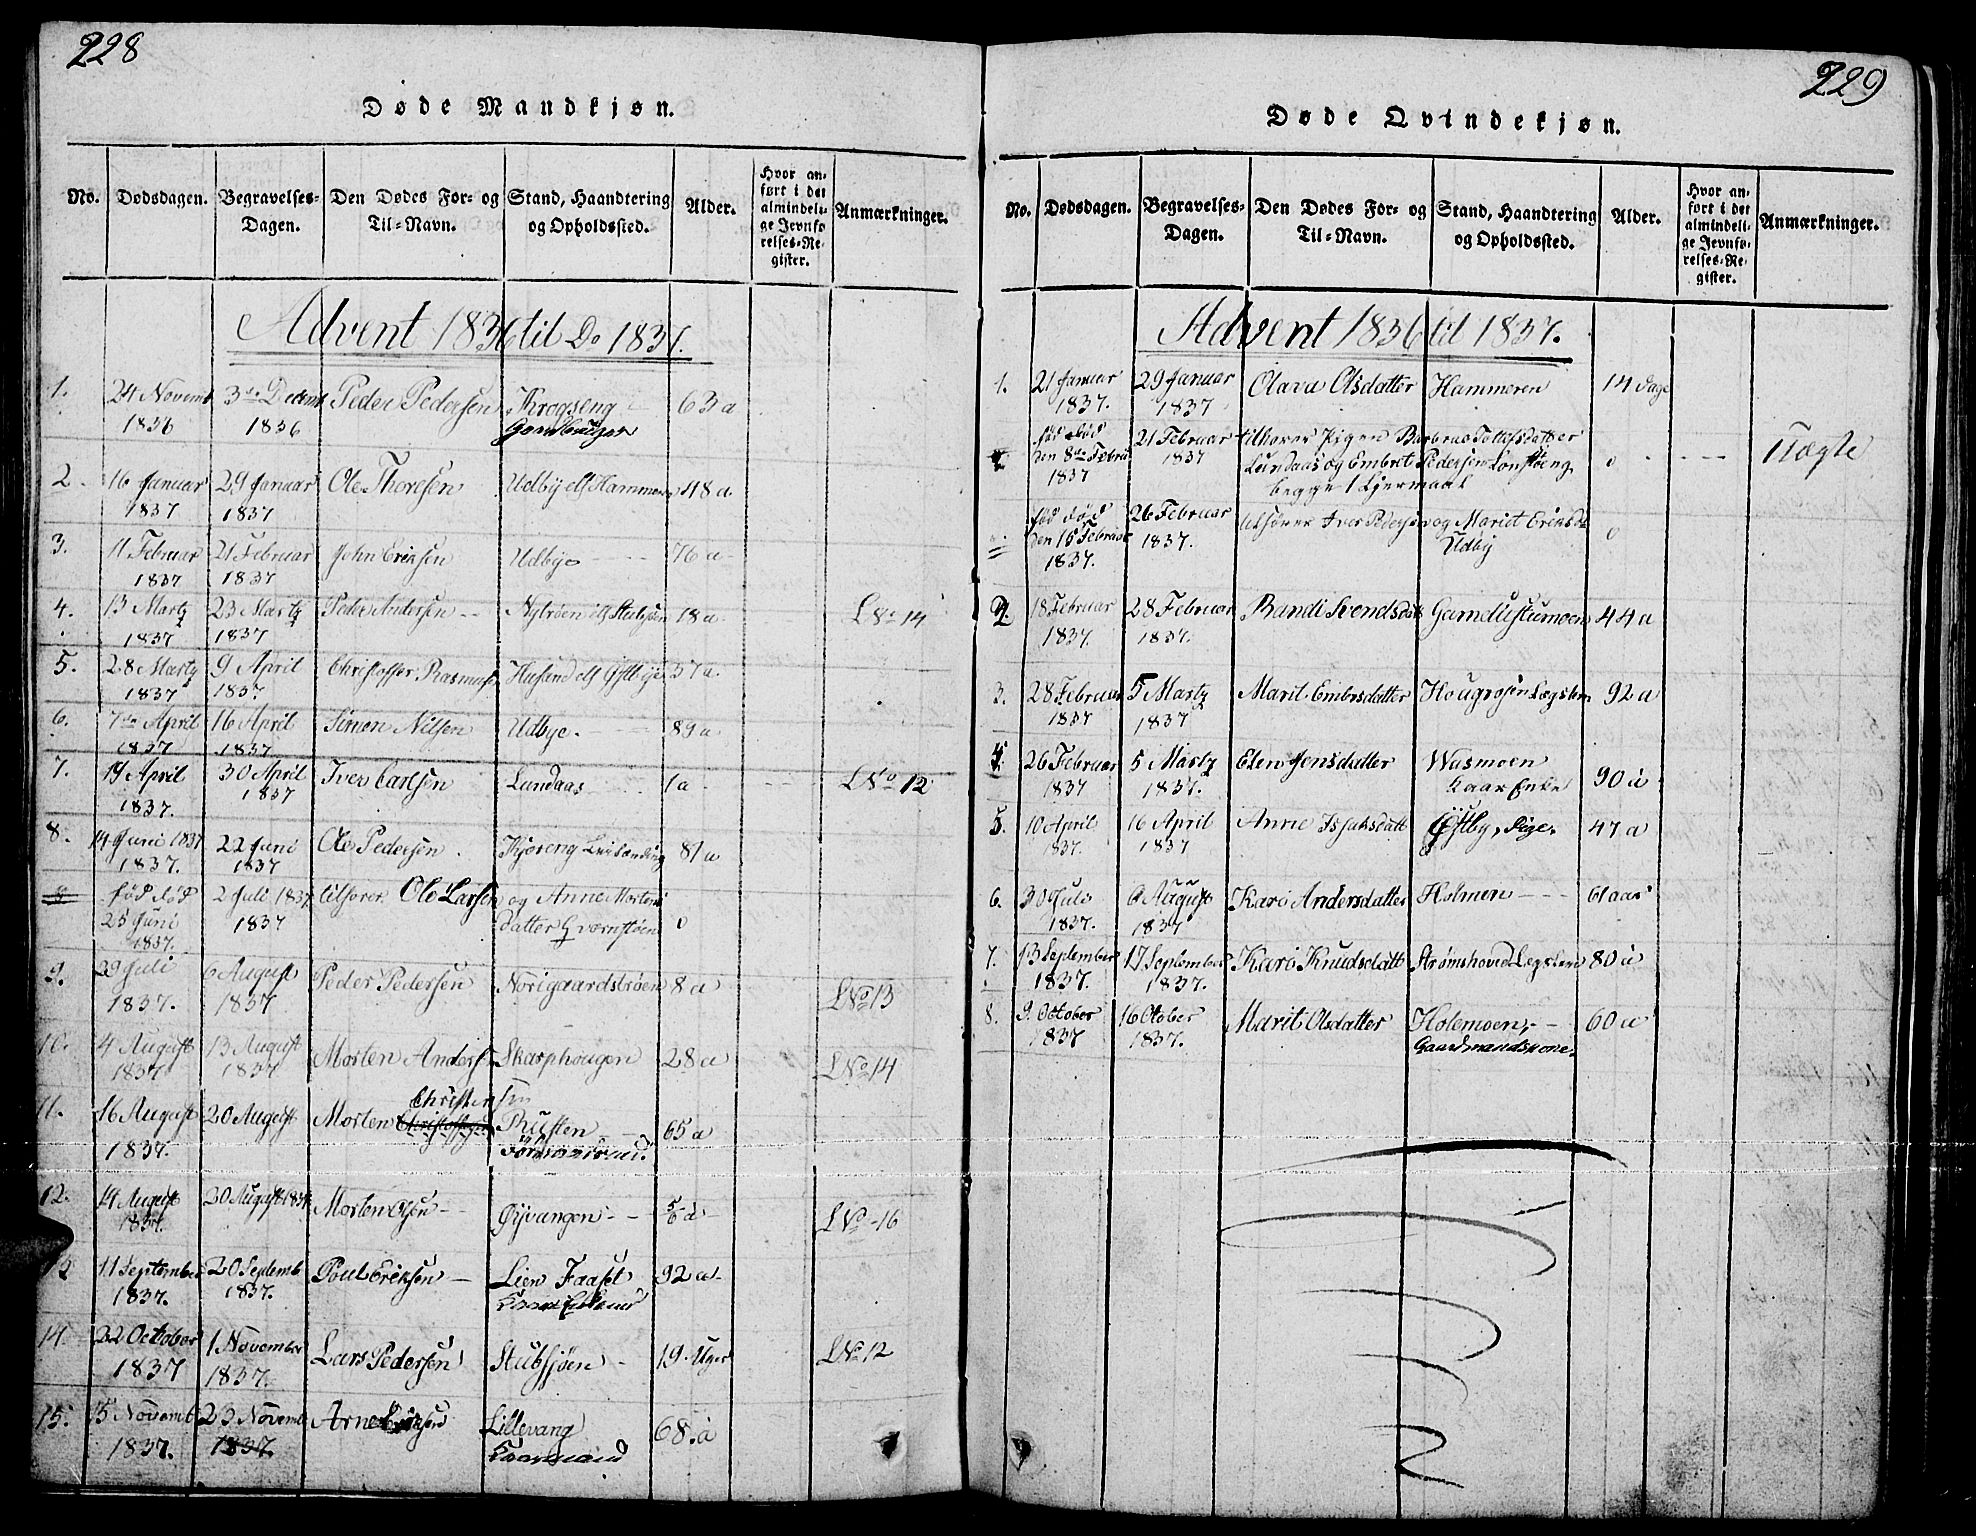 228
Døde Mandkjøn.
No. Dødsdagen. Begravelses-Dagen. Den Dødes For- og Til-Navn. Stand, Haandtering og Opholdssted. Alder. Hvor anført i det almindelige Jevnførelses-Register. Anmærkninger.
Advent 1836 til Do 1837.
1. 24 Novemb 1836 3de Decemb 1836 Peder Pedersen Krogseng 63 a
2. 16 Januar 1837 29 Januar 1837 Ole Thoresen Udby els Hammeren 48 a.
3. 11 Februar 1837 21 Februar 1837 John Eriksen Udbye 76 a
4. 13 Martz 1837 23 Martz 1837 Peder Andersen Nytrøen els Stubsjøen 18 a. L No 14
5. 28 Martz 1837 9 April 1837 Christoffer Rasmusen 57 a.
6. 7de April 1837 16 April 1837 Simon Nilsen Udbye. 89 a
7. 14 April 1837. 30 April 1837 Iver Carlsen Lundaas 1 a L No 12
8. 14 Juni 1837 1837. 22 Juni 1837 Ole Pedersen Kjøreng 81 a
fød død 25 Juni 1837. 2 Juli 1837 1837 tilhører Ole Larsen og Anne Mortens datter Qværnstøen 0
9. 29 Juli 1837. 6 August 1837 Peder Pedersen Norigaardstrøen 8 a L No 13
10. 4 August 1837 13 August 1837 Morten Anders Skarphougen 28 a L No 14
11. 16 August 1837. 20 August Morten Christoffersen Christensen Rusten 65 a
12. 14 August 1837. 20 August 1837 Morten Olsen Øyvangen 5/6 a. L No 16
13 11 September 1837. 20 Septemb 1837. Poul Eriksen Lien Faaset 92 a
14. 22 October 1837 1 November 1837. Lars Pedersen Stubsjøen 19. Uger L No 12
15. 15 Novemb 1837. 23 Novemb 1837. Arne Lillevang 68. a
229
Døde Qvindekjøn.
No. Dødsdagen. Begravelses-Dagen. Den Dødes For- og Til-Navn. Stand, Haandtering og Opholdssted. Alder. Hvor anført i det almindelige Jevnførelses-Register. Anmærkninger.
Advent 1836 til 1837.
1. 21 Januar 1837. 29 Januar 1837 Olava Olsdatter Hammeren 14 Dage
fød død den 8de Febru 1837 21 Februar 1837 tilhører Pigen Barbrao Tollefsdatter Lundaas og Embret Pedersen begge 1 Leiermaal 0 Nægte
fød død den 15 Februar 1837. 26 Februar 1837. tilhører Iver Pedersen og Marit Eriksd Udby 0
2. 18 Februar 1837. 28 Februar 1837. Randi Svendsdatt Gamdlstumoen 44 a
3. 28 Februar 1837 5 Martz 1837 Marit Embrsdatter Hougrosen Lægslem 92 a
4. 26 Februar 1837 5 Martz 1837. Elen Jensdatter Wasmoen Kaar Enke 90 a
5. 10 April 1837. 16 April 1837 Anne Isaksdatt Østby, Pige. 47 a
6. 30 Juli 1837. 6 August 1837 Kari Andersdatter Holmen 61 aar
7. 13 September 1837. 17 September 1837. Kari Knudsdatt Strømshoved Lægslem 80 a
8. 9. October 1837 16 Otober 1837. Marit Olsdatter Holemoen, Gaardmandskone. 60 a